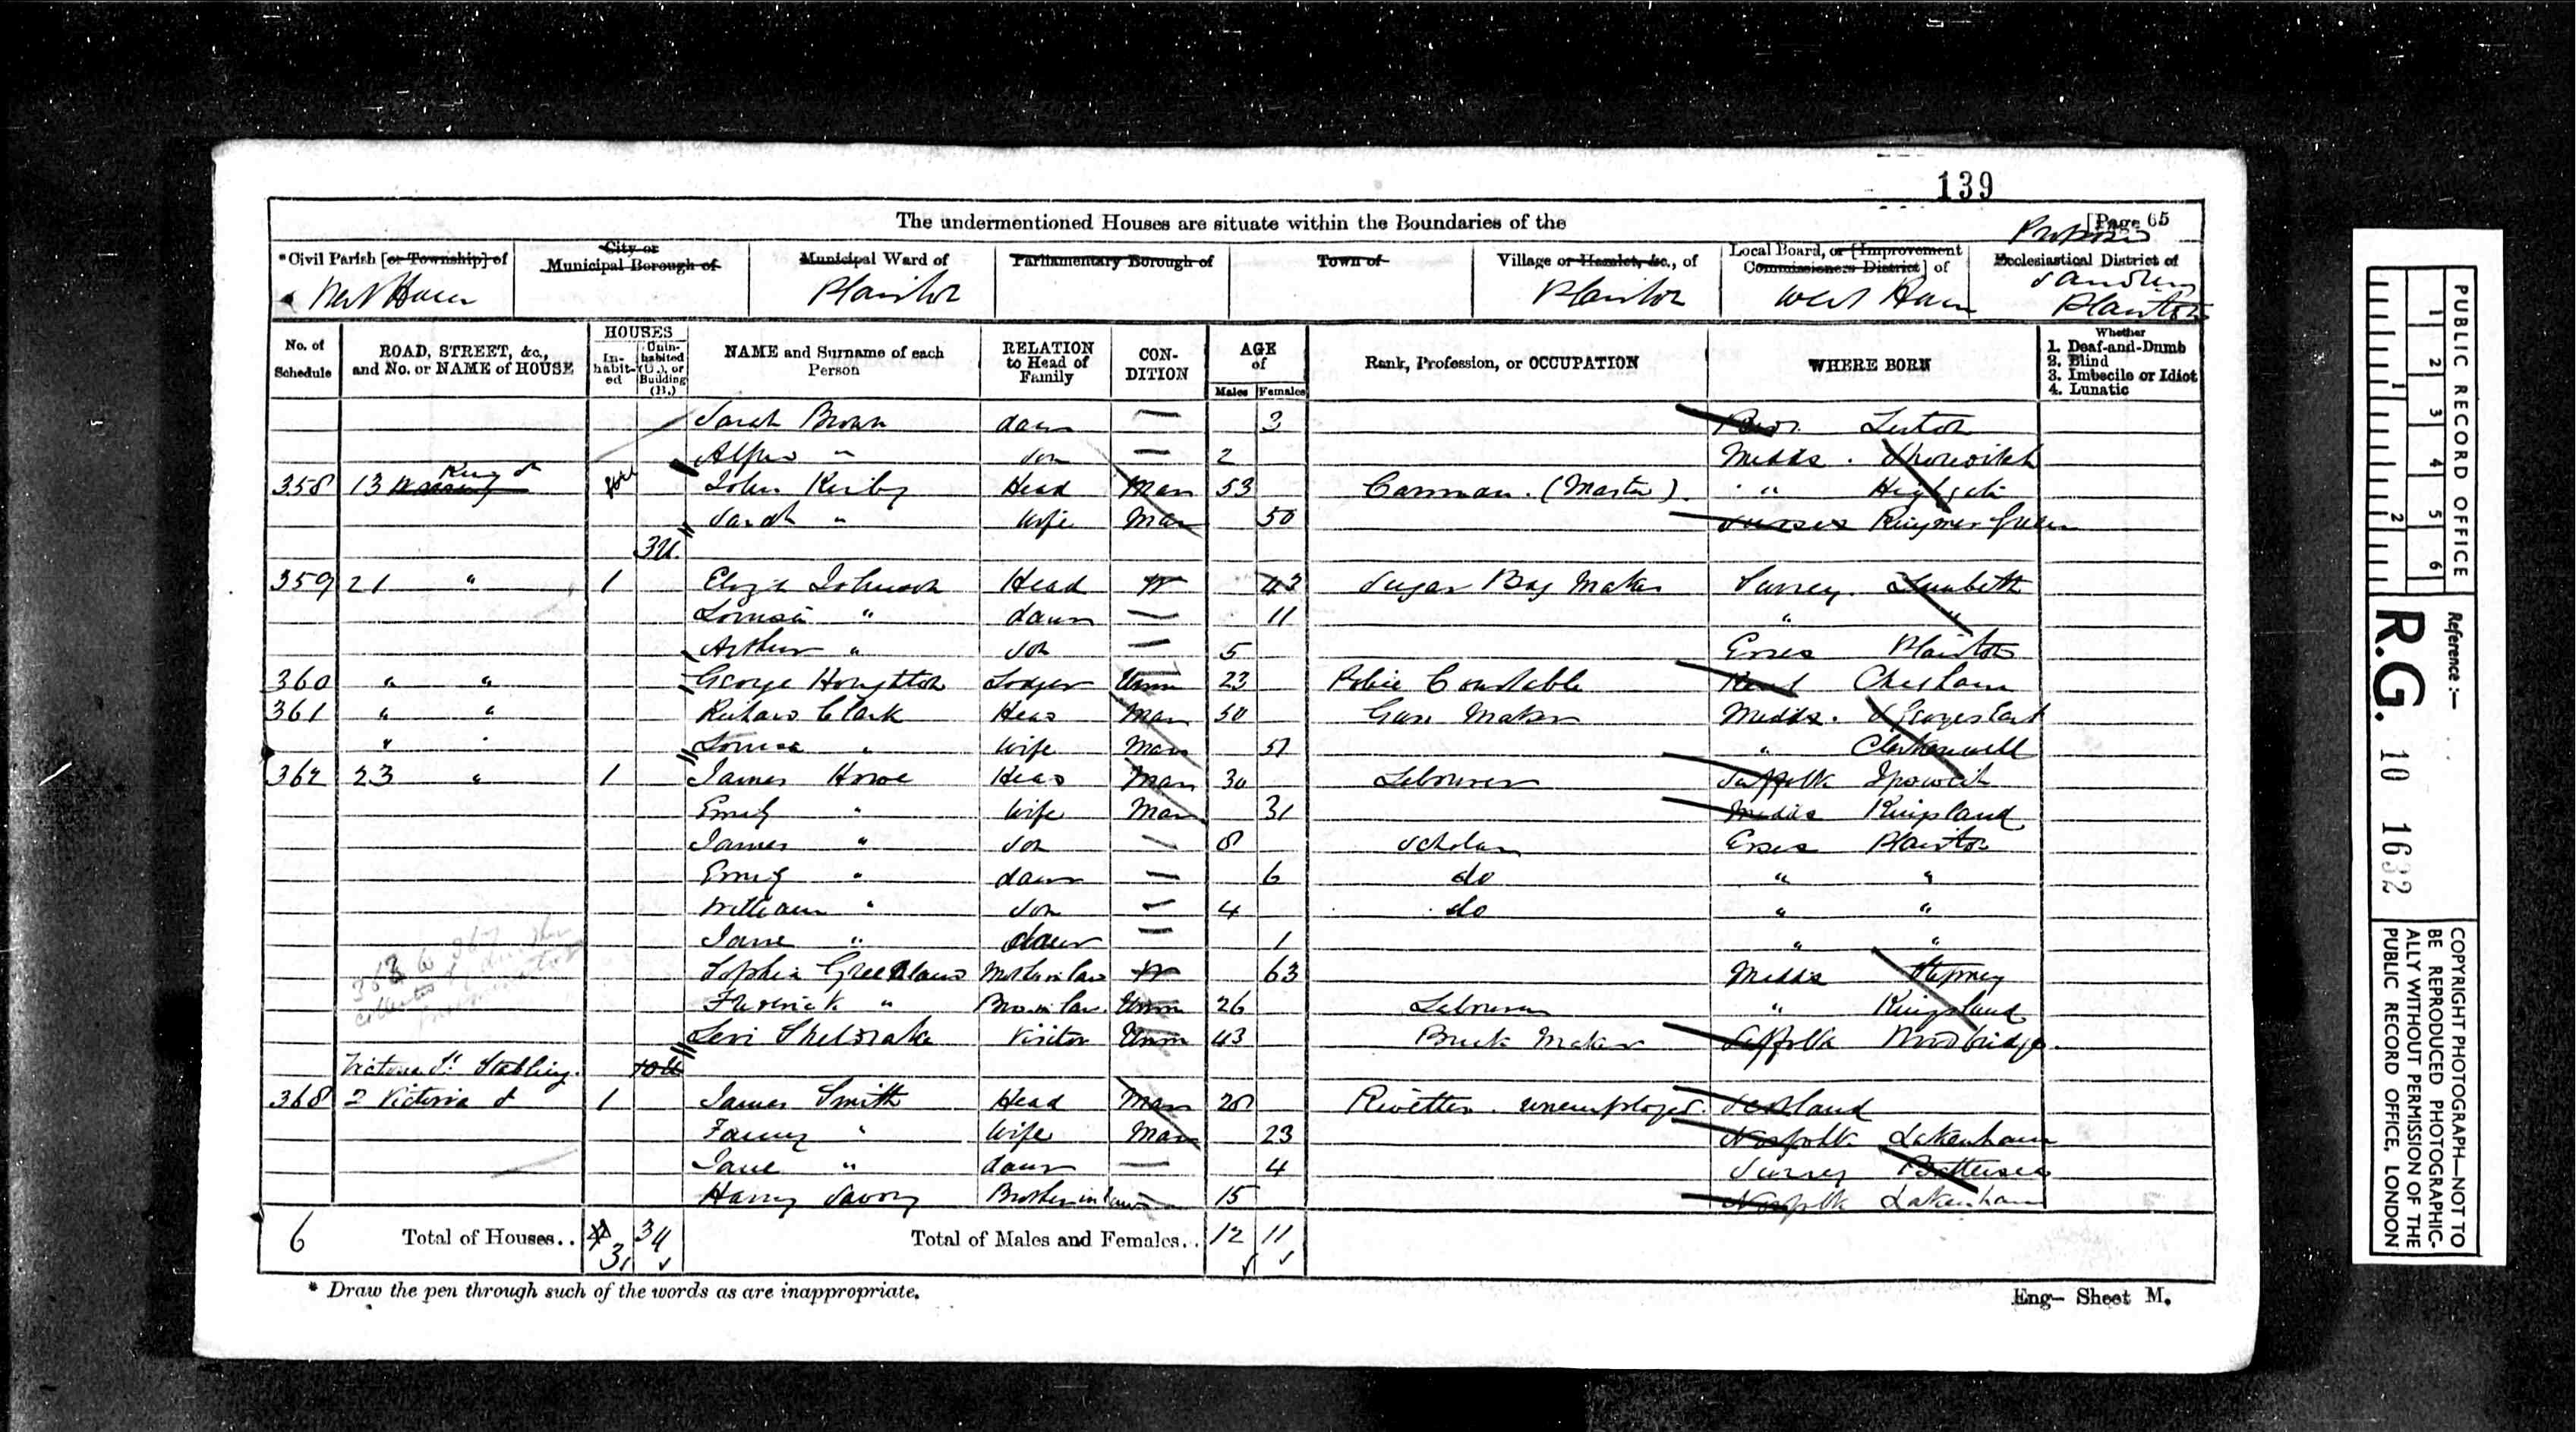 139
The undermentioned Houses are situate within the Boundaries of the [Page 65
*Civil Parish [or Township] of City or Municipal Borough of Municipal Ward of Parliamentary Borough of Town of Village or Hamlet, &c., of Local Board, or [Improvement Commissioners District] of Ecclesiastical District of
West Ham Plaistow Plaistow West Ham Plaistow
No. of Schedule ROAD, STREET, &c., and No. or NAME of HOUSE HOUSES In-habit-ed Unin-habited (U.), or Building (B.) NAME and Surname of each Person RELATION to Head of Family CON-DITION AGE of Males Females Rank, Profession, or OCCUPATION WHERE BORN Whether 1. Deaf-and-Dumb 2. Blind 3. Imbecile or Idiot 4. Lunatic
Sarah Brown daur — 3
Alfred " son — 2 Middx.
358 13 King St John Kirby Head Mar 53 Carman. (Master) " Highgate
Sarah " Wife Mar 50 Sussex Ringmer Green
3U.
359 21 " 1 Eliza Johnson Head W 43 Sugar Bag Maker Surrey. Lambeth
Louisa " daur — 11 " "
Arthur " son — 5 Essex Plaistow
360 " " George Houghton Lodger Unm 23 Police Constable Kent Chesham
361 " " Richard Clark Head Mar 50 Middx.
" Louisa " Wife Mar 51 " Clerkenwell
362 23 " 1 James Howe Head Mar 30 Labourer Suffolk Ipswich
Emily " Wife Mar 31 Middx Kingsland
James " son — 8 Scholar Essex Plaistow
Emily " daur — 6 do " "
William " son — 4 do " "
Jane " daur — 1 " "
Sophia Greenlaws Mother in law W 63 Middx Stepney
Frederick " Bro in law. Unm 26 Labourer " Kingsland
Levi Sheldrake Visitor Unm 43 Brick Maker Suffolk Woodbridge.
Victoria St Stabling. 10U
368 2 Victoria St 1 James Smith Head Mar 28 Rivetter. unemployed. Scotland
Fanny " Wife Mar 23 Norfolk Lakenham
Jane " daur — 4 Surrey Battersea
Harry Savory Brother in law — 15 Norfolk Lakenham
6 Total of Houses.. 3 Total of Males and Females.. 12 11
* Draw the pen through such of the words as are inappropriate.
Eng— Sheet M.
PUBLIC RECORD OFFICE
1 2 3 4 5 6
1 2
Reference :—
R.G. 10 1632
COPYRIGHT PHOTOGRAPH—NOT TO BE REPRODUCED PHOTOGRAPHIC-ALLY WITHOUT PERMISSION OF THE PUBLIC RECORD OFFICE, LONDON